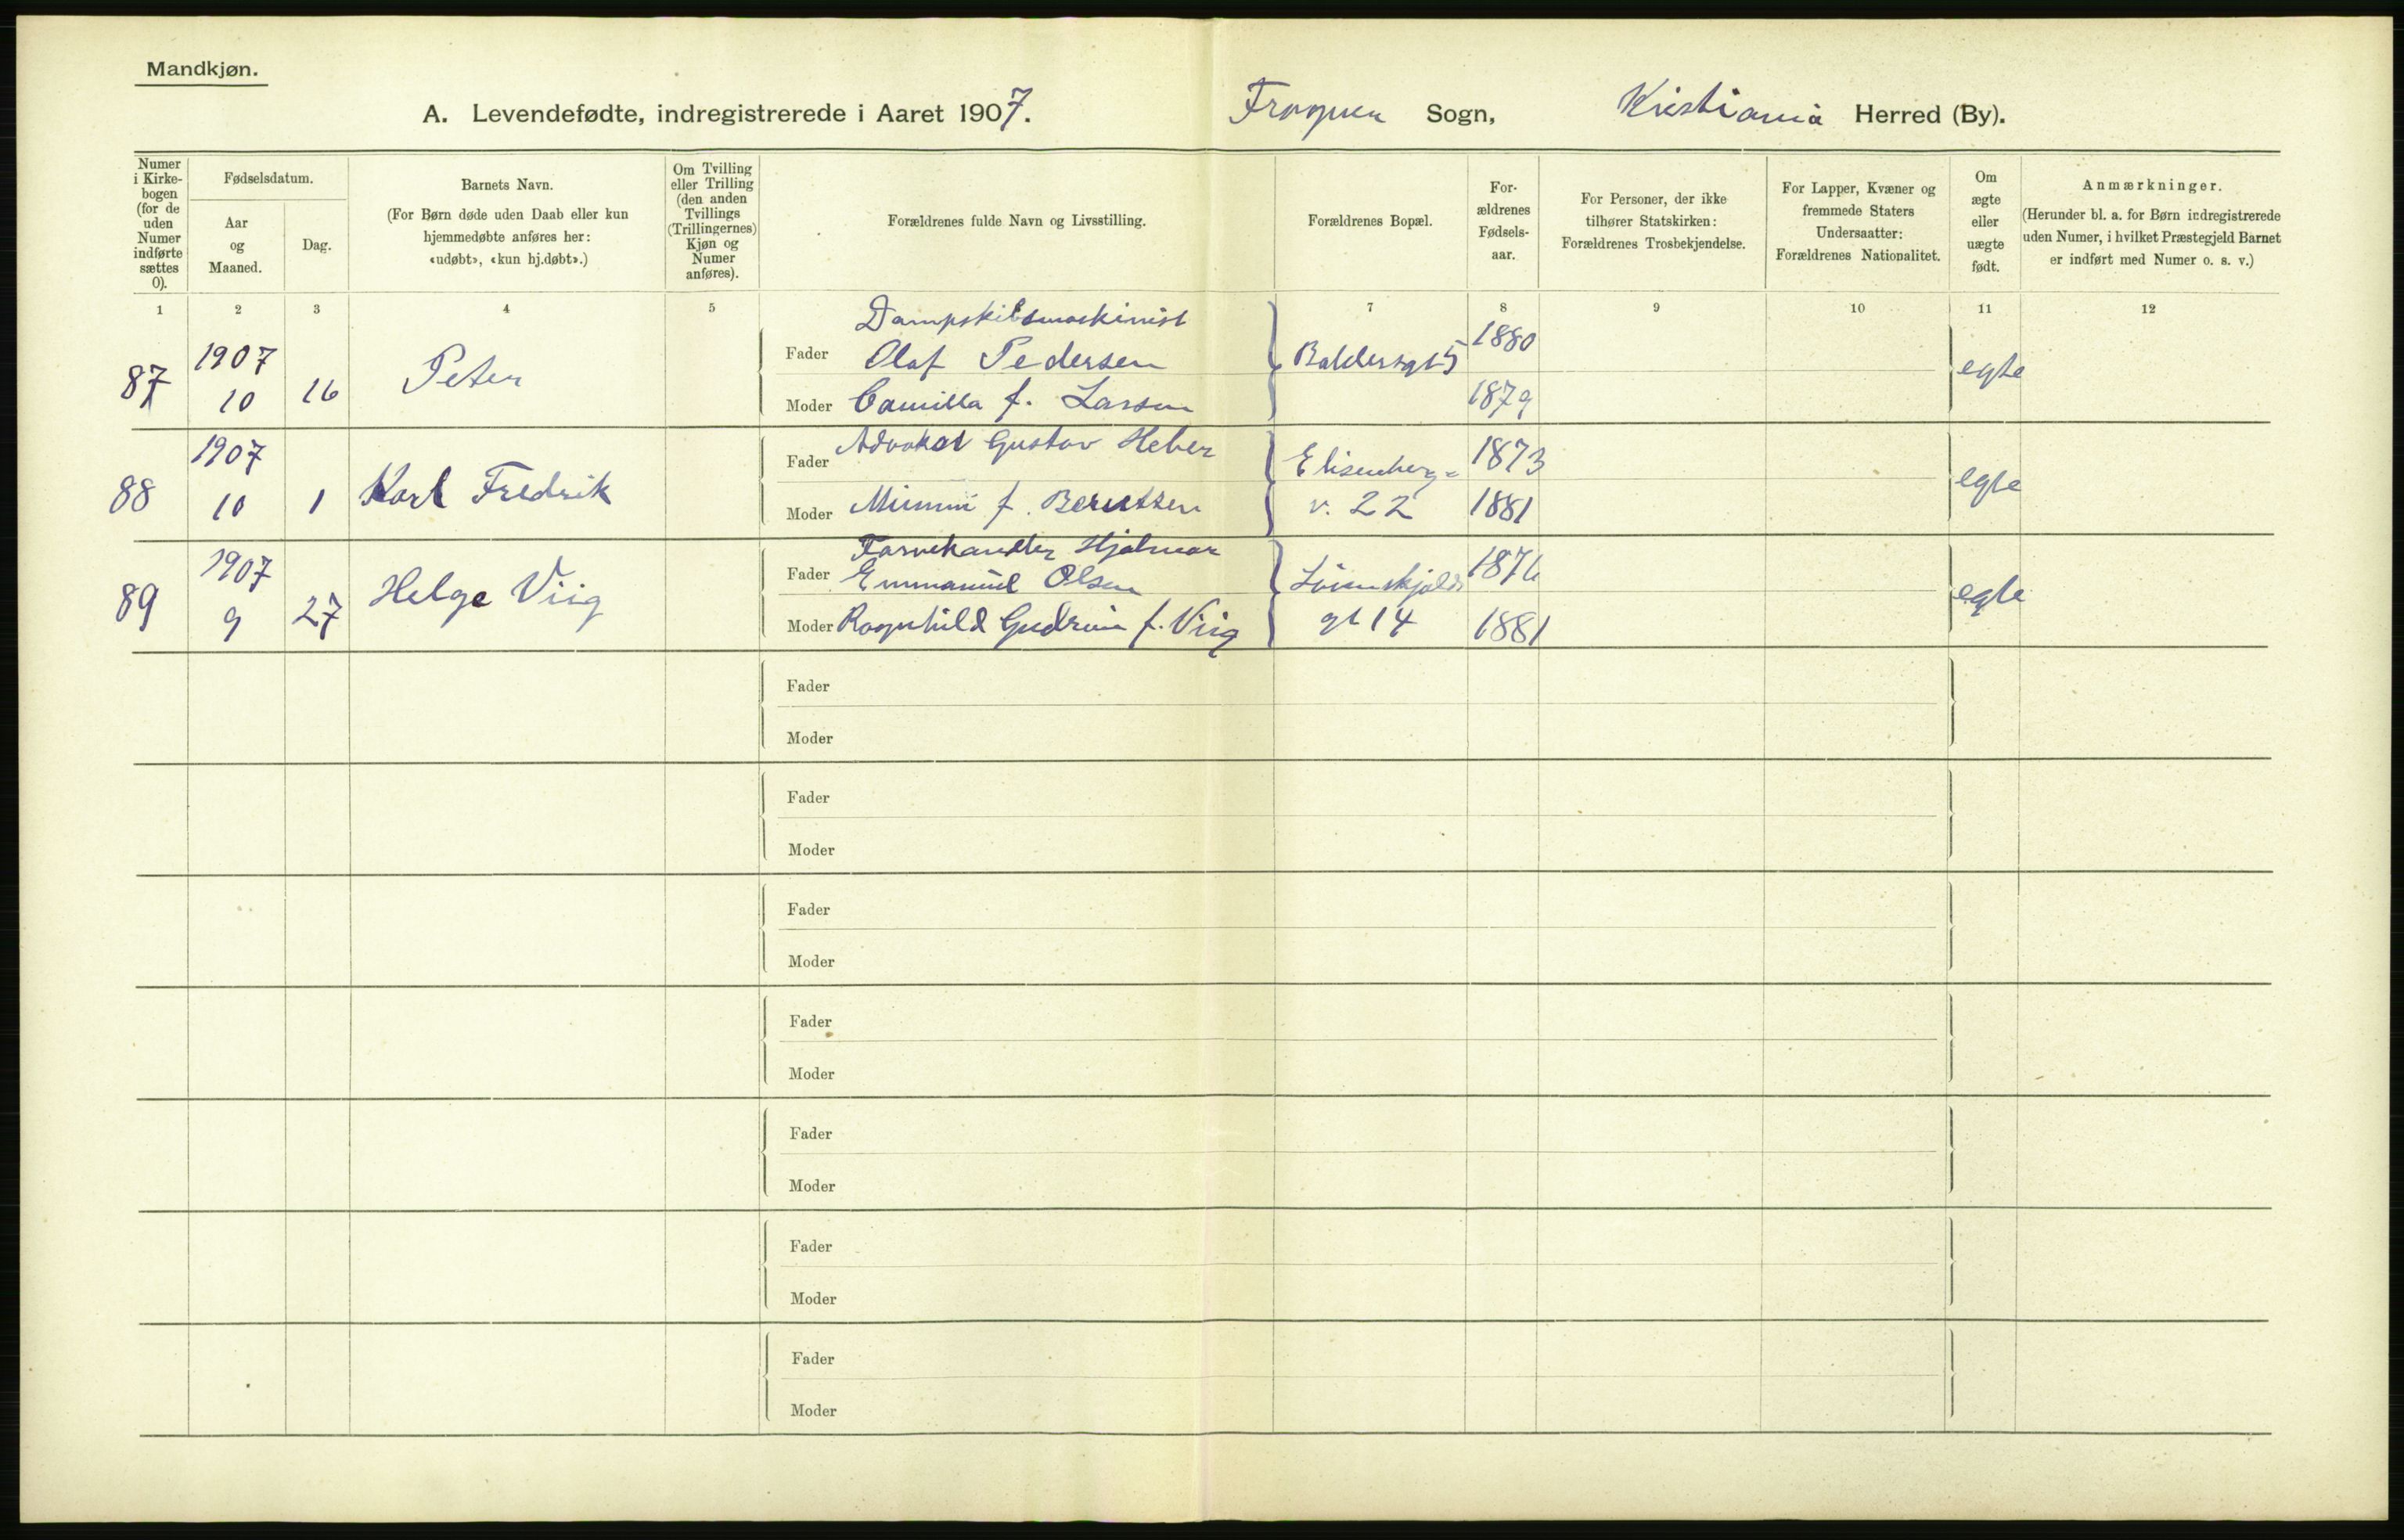 Mandkjøn.
A. Levendefødte, indregistrerede i Aaret 1907. Frogner Sogn, Kristiania Herred (By).
Numer
i Kirke-
bogen
(for de
uden
Numer
indførte
sættes
0).
Fødselsdatum.
Aar
og
Maaned.
Dag.
Barnets Navn.
(For Børn døde uden Daab eller kun
hjemmedøbte anføres her:
«udøbt», «kun hj.døbt».)
Om Tvilling
eller Trilling
(den anden
Tvillings
(Trillingernes)
Kjøn og
Numer
anføres).
Forældrenes fulde Navn og Livsstilling.
Forældrenes Bopæl.
For-
ældrenes
Fødsels-
aar.
For Personer, der ikke
tilhører Statskirken:
Forældrenes Trosbekjendelse.
For Lapper, Kvæner og
fremmede Staters
Undersaatter:
Forældrenes Nationalitet.
Om
ægte
eller
uægte
født.
Anmærkninger.
(Herunder bl. a. for Børn indregistrerede
uden Numer, i hvilket Præstegjeld Barnet
er indført med Numer o. s. v.)
1 2 3 4 5 7 8 9 10 11 12
87
1907
10 16
Peter
Dampskibsmaskinist
Fader Olaf Pedersen
Moder Camilla f. Larsen
Baldersgt 5
1880
1879
egte
88
1907
10 1
Karl Fredrik
Fader Advokat Gustav Heber
Moder Mimmi f. Berntzen
Elisenberg-
v. 22
1873
1881
egte
89
1907
9 27
Helge Viig
Farvehandler Hjalmar
Fader Emmanuel Olsen
Moder Ragnhild Gudrun f. Viig
Lövenskjolds
gt 14
1876
1881
egte
Fader
Moder
Fader
Moder
Fader
Moder
Fader
Moder
Fader
Moder
Fader
Moder
Fader
Moder